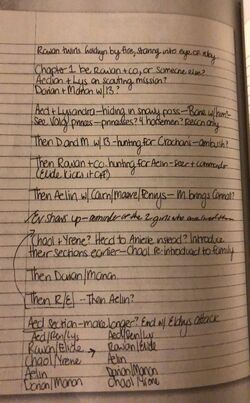 Rowan twirls Goldryn by fire, staring into eye on ruby
Chapter 1 be Rowan + co, or someone else?
Aedion + Lys on scouting mission?
Dorian + Manon w/ 13?
Aed + Lysandra—hiding in snowy pass—Bane w/ them?
See Valg princes—princesses? 4 horsemen? Recon only
Then D and M w/ 13—hunting for Crochans—ambush?
Then Rowan + co. hunting for Aelin—Deer + commander
(Elide kicks it off)
Then Aelin w/ Cairn/Maeve/Fenrys—M brings Connall?
Ev shows up—reminder of the 2 girls who
Chaol + Yrene? Head to Anielle instead? Introduce
their sections earlier—Chaol re-introduced to family
Then Dorian/Manon
Then R/E/ - Then Aelin?
Aed section—make longer? End w/ Eldrys attack
Aed/Ren/Lys Aed/Ren/Lys
Rowan/Elide → Rowan/Elide
Chaol/Yrene Aelin
Aelin Dorian/Manon
Dorian/Manon Chaol/Yrene